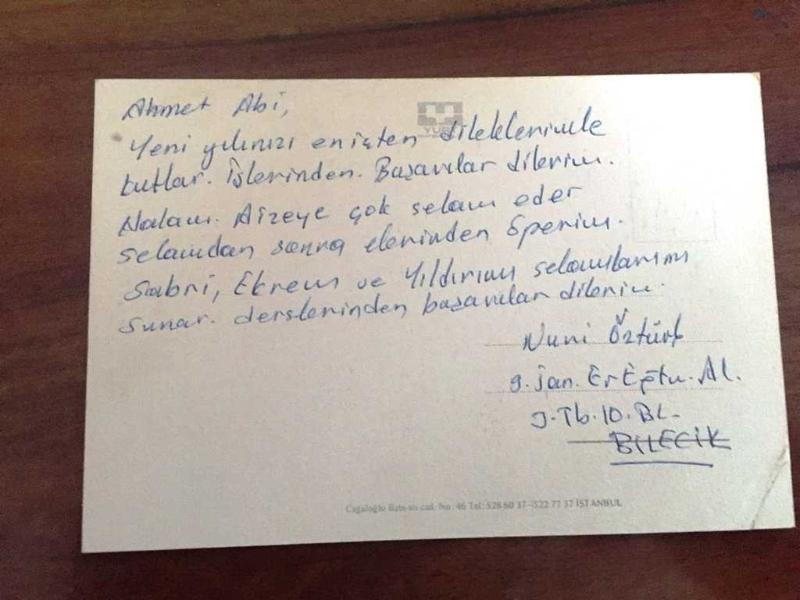 Ahmet Abi,
YURT
Yeni yılınızı en içten dileklerimle
kutlar. İşlerinden. Başarılar dilerim.
Halam. Aizeye çok selam eder
selamdan sonra elerinden öperim.
Sabri, Ekrem ve Yıldırım selamlarımı
sunar. derslerinden başarılar dilerim.
Nuri Öztürk
9. Jan. Er Eğtm. Al.
J. Tb. 10. BL.
BİLECİK
Cağaloğlu Babıali cad. No: 46 Tel: 528 60 37-522 77 37 İSTANBUL